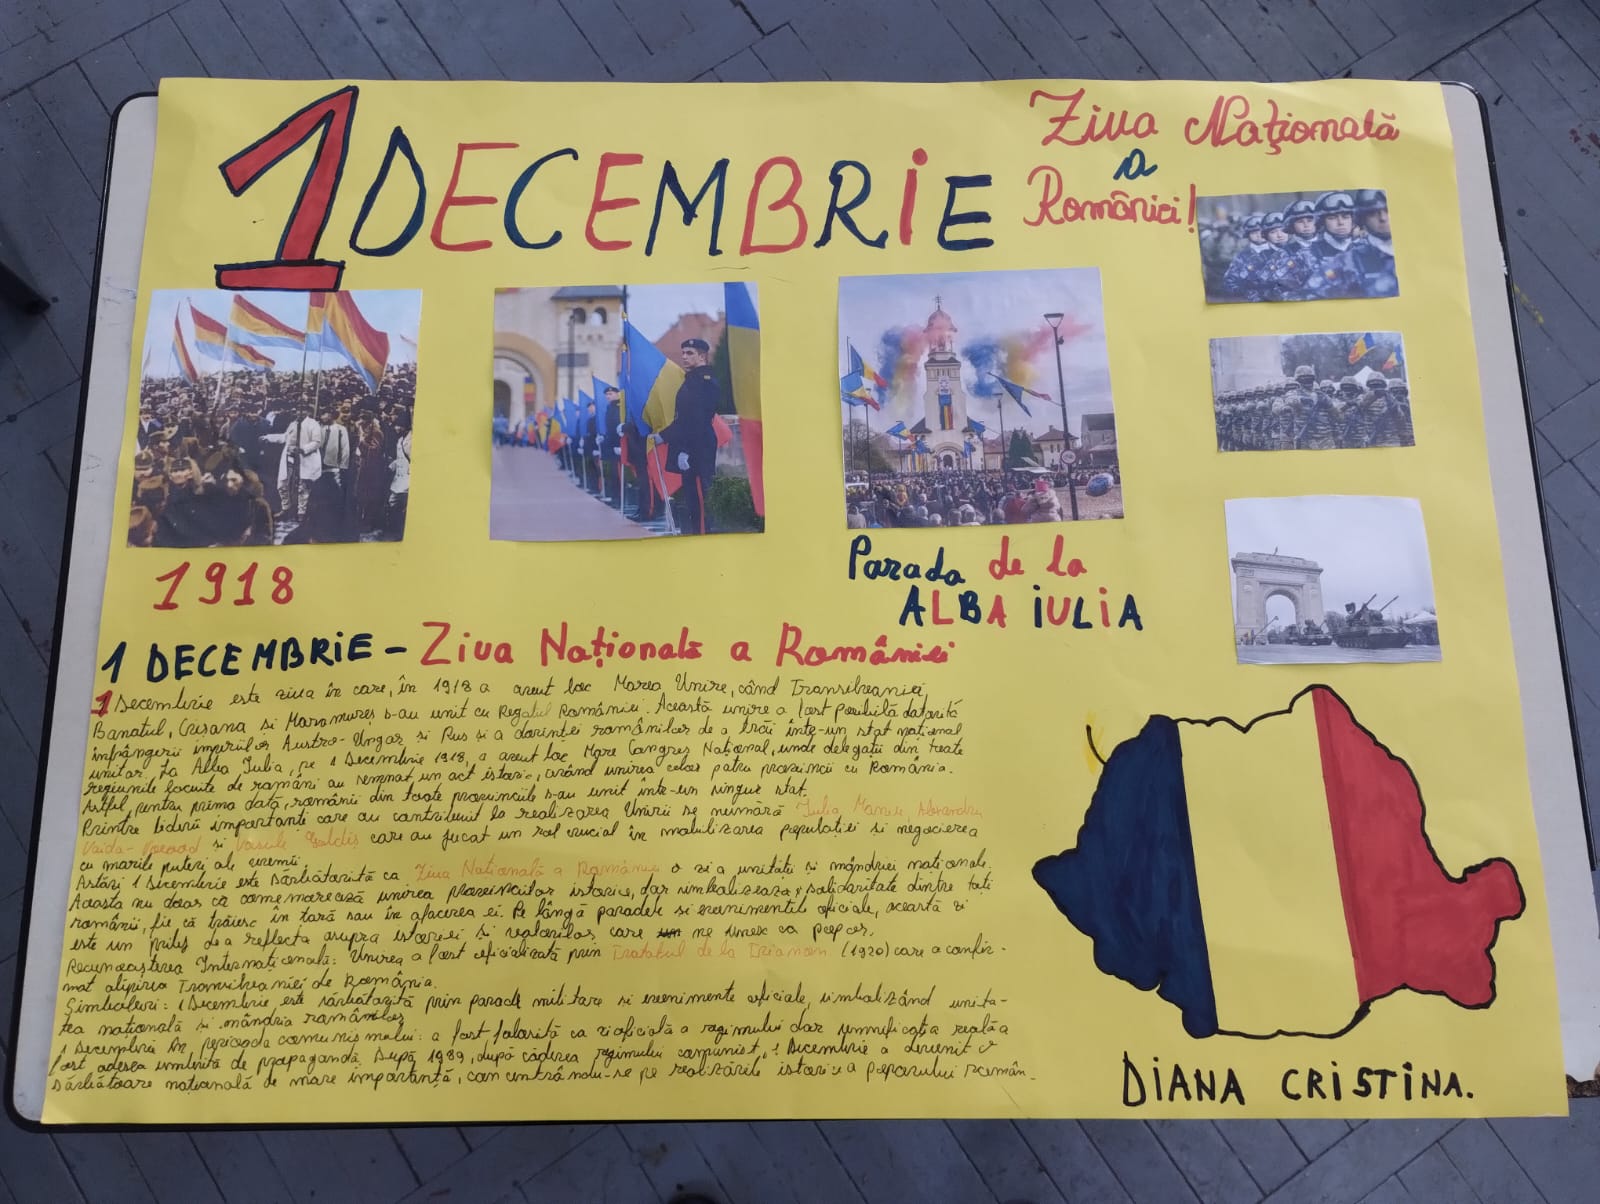 1 DECEMBRIE
Ziua Națională
a
României!
1918
Parada de la
ALBA IULIA
1 DECEMBRIE - Ziua Națională a României
1 Decembrie este ziua în care, în 1918 a avut loc Marea Unire, când Transilvaniei,
Banatul, Crișana și Maramureș s-au unit cu Regatul României. Această unire a fost posibilă datorită
înfrângerii imperiilor Austro-Ungar și Rus și a dorinței românilor de a trăi într-un stat național
unitar. La Alba Iulia, pe 1 Decembrie 1918, a avut loc Mare Congres Național, unde delegații din toate
regiunile locuite de români au semnat un act istoric, unirea celor patru provincii cu România.
Astfel, pentru prima dată, românii din toate provinciile s-au unit într-un singur stat.
Printre liderii importanți care au contribuit la realizarea Unirii se numără Iuliu Maniu, Alexandru
Vaida-Voevod și Vasile Goldiș care au jucat un rol crucial în mobilizarea populației și negocierea
cu marile puteri ale vremii.
Astăzi 1 Decembrie este sărbătorită ca Ziua Națională a României o zi a unității și mândriei naționale.
Aceasta nu doar că comemorează unirea provinciilor istorice, dar simbolizează și solidaritate dintre toți
românii, fie că trăiesc în țară sau în afacerea ei. Pe lângă paradele și evenimentele oficiale, această zi
este un prilej de a reflecta asupra istoriei și valorilor care ne unesc ca popor.
Recunoașterea Internațională: Unirea a fost oficializată prin Tratatul de la Trianon (1920) care a confir-
mat alipirea Transilvaniei de România.
Simboluri: 1 Decembrie este sărbătorită prin parade militare și evenimente oficiale, simbolizând unita-
tea națională și mândria românilor
1 Decembrie în perioada comunismului: a fost folosită ca zi oficială a regimului dar semnificația reală a
fost adesea umbrită de propagandă. După 1989, după căderea regimului comunist, 1 Decembrie a devenit o
sărbătoare națională de mare importanță, concentrându-se pe realizările istorice a poporului român.
DIANA CRISTINA.